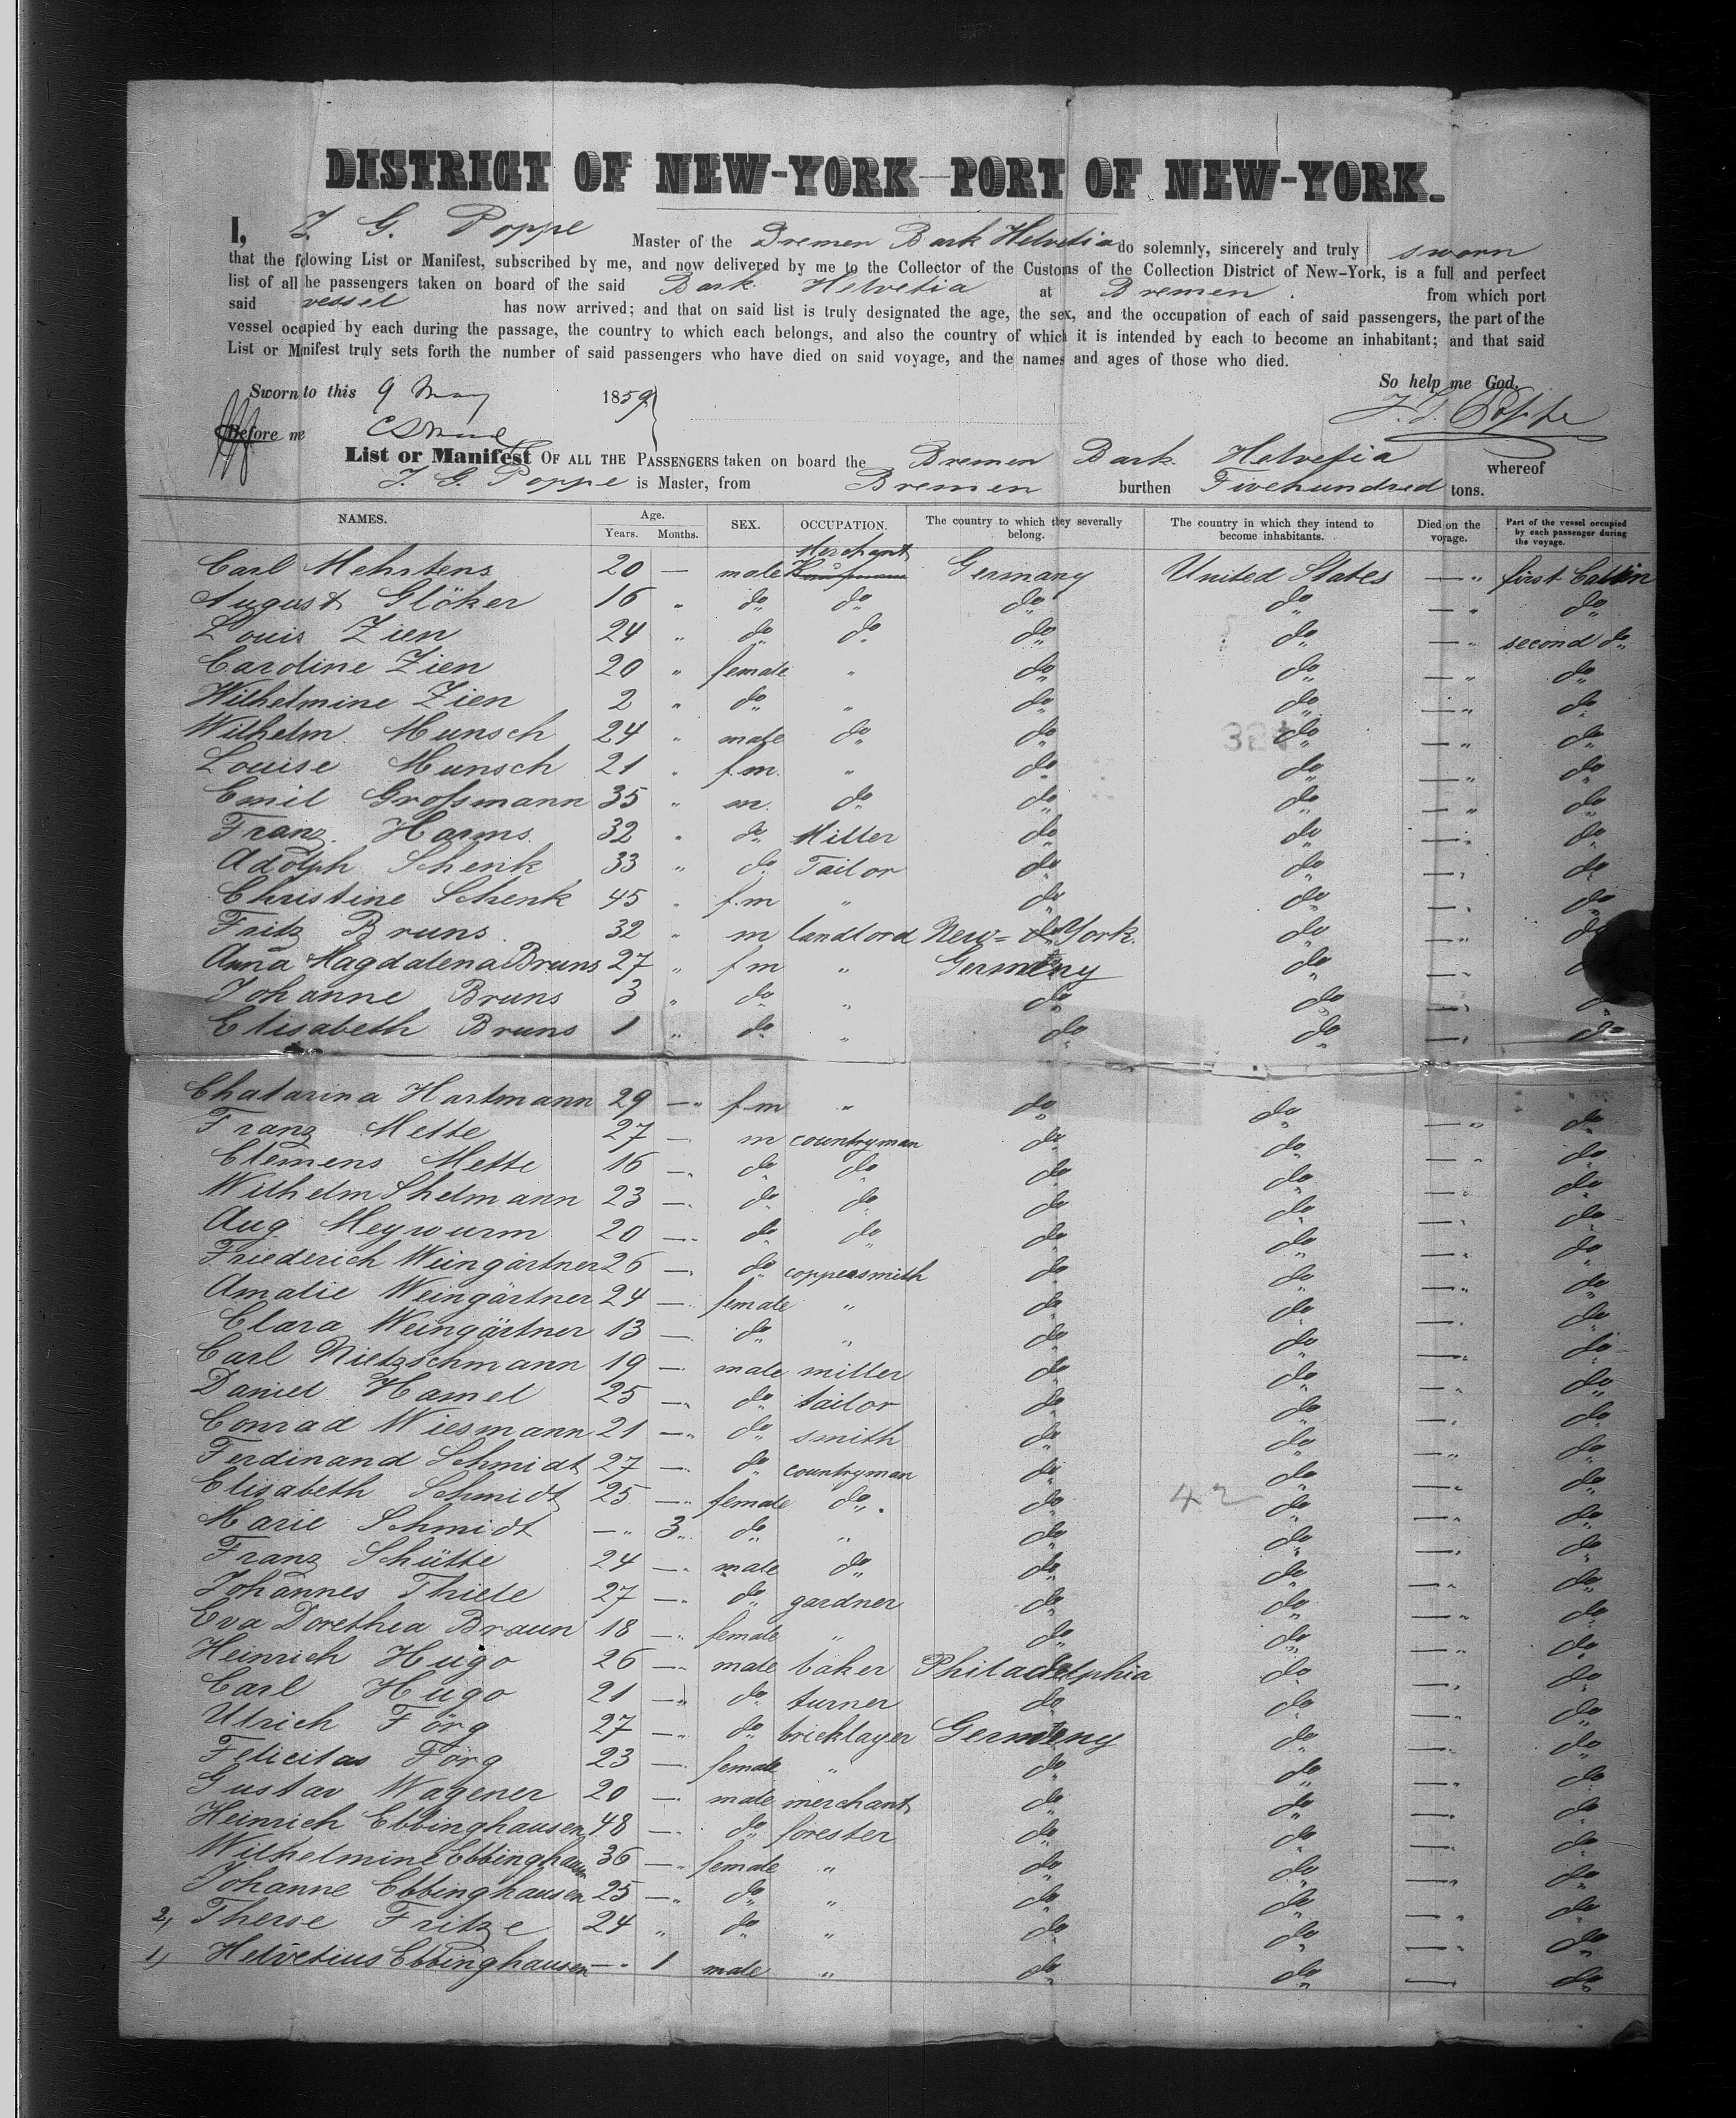 DISTRICT OF NEW-YORK—PORT OF NEW-YORK.
I, J. G. Poppe Master of the Bremen Bark Helvetia do solemnly, sincerely and truly sworn
that the fdlowing List or Manifest, subscribed by me, and now delivered by me to the Collector of the Customs of the Collection District of New-York, is a full and perfect
list of all he passengers taken on board of the said Bark Helvetia at Bremen. from which port
said vessel has now arrived; and that on said list is truly designated the age, the sex, and the occupation of each of said passengers, the part of the
vessel occupied by each during the passage, the country to which each belongs, and also the country of which it is intended by each to become an inhabitant; and that said
List or Mnifest truly sets forth the number of said passengers who have died on said voyage, and the names and ages of those who died.
So help me God.
Sworn to this 9 May 1859
J. G. Poppe
Before me
List or Manifest OF ALL THE PASSENGERS taken on board the Bremen Bark Helvetia whereof
J. G. Poppe is Master, from Bremen burthen Fivehundred tons.
NAMES. Age. Years. Months. SEX. OCCUPATION. The country to which they severally belong. The country in which they intend to become inhabitants. Died on the voyage. Part of the vessel occupied by each passenger during the voyage.
Merchant
Carl Mehrtens 20 — male Kaufmann Germany United States — " first Cabbin
August Glöker 16 " do do do do — " do
Louis Zien 24 " do do do do — " second do
Caroline Zien 20 " female " do do — " do
Wilhelmine Zien 2 " do " do do — " do
Wilhelm Munsch 24 " male do do do — " do
Louise Munsch 21 " f.m. " do do — " do
Emil Großmann 35 " m. do do do — " do
Franz Harms 32 " do Miller do do — " do
Adolph Schenk 33 " do Tailor do do — " do
Christine Schenk 45 " f.m " do do — " do
Fritz Bruns 32 " m landlord New-York. do — " do
Anna Magdalena Bruns 27 " f m " Germany do — "
Johanne Bruns 3 " do " do do — " do
Elisabeth Bruns 1 " do " do do — " do
Chatarina Hartmann 29 — " f.m " do do — " do
Franz Mette 27 — m countryman do do — " do
Clemens Mette 16 — do do do do — " do
Wilhelm Shelmann 23 — do do do do — " do
Aug. Meywurm 20 — do do do do — " do
Friederich Weingärtner 26 — do coppersmith do do — " do
Amalie Weingärtner 24 — female " do do — " do
Clara Weingärtner 13 — do " do do — " do
Carl Nietzschmann 19 — male miller do do — " do
Daniel Hamel 25 — do tailor do do — " do
Conrad Wiesmann 21 — do smith do do — " do
Ferdinand Schmidt 27 — do countryman do do — " do
Elisabeth Schmidt 25 — female do do 42 do — " do
Marie Schmidt — " 3 do " do do — " do
Franz Schütte 24 — male do do do — " do
Johannes Thiele 27 — do gardner do do — " do
Eva Dorethea Braun 18 — female " do do — " do
Heinrich Hugo 26 — male baker Philadelphia do — " do
Carl Hugo 21 — " do turner do do — " do
Ulrich Förg 27 — " do bricklayer Germany do — " do
Felicitas Förg 23 — female " do do — " do
Gustav Wagener 20 — male merchant do do — " do
Heinrich Ebbinghausen 48 — do forester do do — " do
Wilhelmine Ebbinghausen 36 — " female " do do — " do
Johanne Ebbinghausen 25 — do " do do — " do
2, Therse Fritze 24 " do " do do — " do
1, Helvetius Ebbinghausen — " 1 male " do do — do